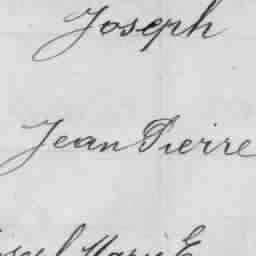 Joseph
Jean Pierre
Marie E